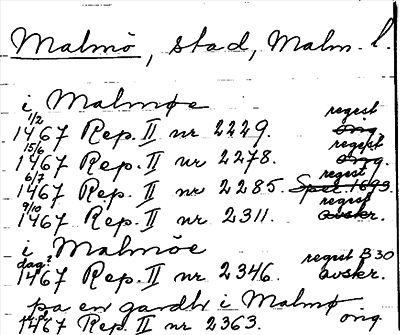 Malmö, stad, Malm. l.
i Malmøe
1/2 regest
1467 Rep. II nr 2229. orig.
15/6 regest
1467 Rep. II nr 2278. orig.
6/7 regest
1467 Rep. II nr 2285. Spec. 1693.
9/10 regest
1467 Rep. II nr 2311. avskr.
i Malmöe
dag? regest B 30
1467 Rep. II nr 2346. avskr.
pa en gardh i Malmø
1467 Rep. II nr 2363. orig